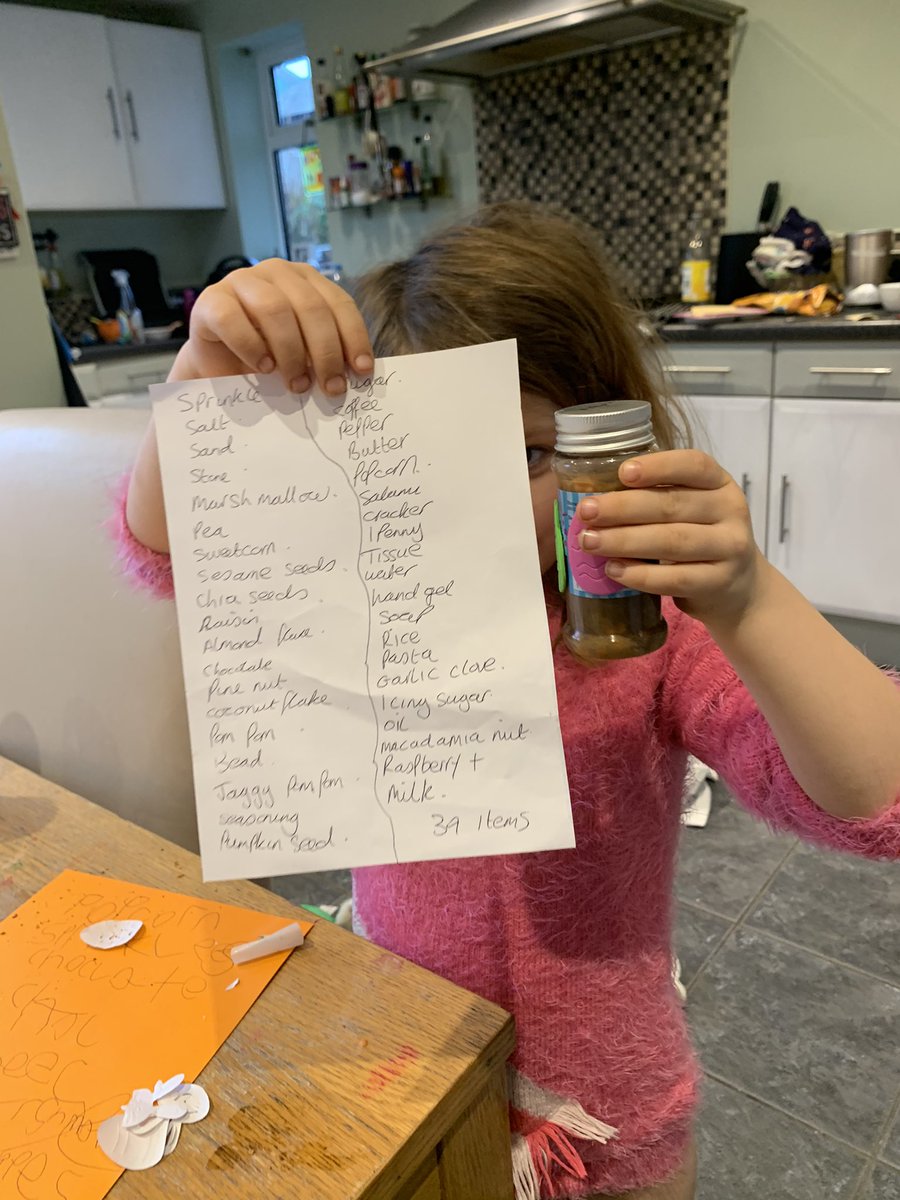 Sprinkle
Salt
Sand
Stone
Marsh mallow.
Pea
Sweetcorn.
Sesame seeds.
Chia seeds.
Raisin
Almond
Chocolate
Pine nut
coconut flake.
Pom Pom
Bead.
Jaggy Pom Pom.
seasoning
Pumpkin seed.
Sugar.
Coffee
Pepper
Butter
Popcorn.
Salami
cracker
1 Penny
Tissue
water
hand gel
Soap
Rice
Pasta
Garlic clove.
Icing sugar.
oil
macadamia nut.
Raspberry +
Milk.
39 Items
chocolate